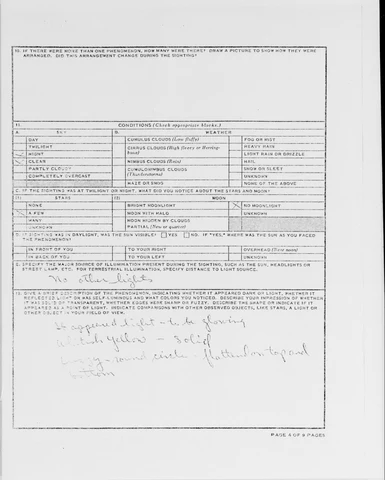 10. IF THERE WERE MORE THAN ONE PHENOMENON, HOW MANY WERE THERE? DRAW A PICTURE TO SHOW HOW THEY WERE
ARRANGED. DID THIS ARRANGEMENT CHANGE DURING THE SIGHTING?
11. CONDITIONS (Check appropriate blocks.)
A. SKY B. WEATHER
DAY CUMULUS CLOUDS (Low fluffy) FOG OR MIST
TWILIGHT CIRRUS CLOUDS (High fleecy or Herring-bone) HEAVY RAIN
NIGHT LIGHT RAIN OR DRIZZLE
CLEAR NIMBUS CLOUDS (Rain) HAIL
PARTLY CLOUDY CUMULONIMBUS CLOUDS (Thunderstorms) SNOW OR SLEET
COMPLETELY OVERCAST UNKNOWN
HAZE OR SMOG NONE OF THE ABOVE
C. IF THE SIGHTING WAS AT TWILIGHT OR NIGHT, WHAT DID YOU NOTICE ABOUT THE STARS AND MOON?
(1) STARS (2) MOON
NONE BRIGHT MOONLIGHT NO MOONLIGHT
A FEW MOON WITH HALO UNKNOWN
MANY MOON HIDDEN BY CLOUDS
UNKNOWN PARTIAL (New or quarter)
D. IF SIGHTING WAS IN DAYLIGHT, WAS THE SUN VISIBLE? YES NO. IF "YES," WHERE WAS THE SUN AS YOU FACED
THE PHENOMENON?
IN FRONT OF YOU TO YOUR RIGHT OVERHEAD (Near noon)
IN BACK OF YOU TO YOUR LEFT UNKNOWN
E. SPECIFY THE MAJOR SOURCE OF ILLUMINATION PRESENT DURING THE SIGHTING, SUCH AS THE SUN, HEADLIGHTS OR
STREET LAMP, ETC. FOR TERRESTRIAL ILLUMINATION, SPECIFY DISTANCE TO LIGHT SOURCE.
No other lights
GIVE A BRIEF DESCRIPTION OF THE PHENOMENON, INDICATING WHETHER IT APPEARED DARK OR LIGHT, WHETHER IT
REFLECTED LIGHT OR WAS SELF-LUMINOUS AND WHAT COLORS YOU NOTICED. DESCRIBE YOUR IMPRESSION OF WHETHER
IT WAS SOLID OR TRANSPARENT, WHETHER EDGES WERE SHARP OR FUZZY. DESCRIBE THE SHAPE OR INDICATE IF IT
APPEARED AS A POINT OF LIGHT. INDICATE COMPARISONS WITH OTHER OBSERVED OBJECTS, LIKE STARS, A LIGHT OR
OTHER OBJECT IN YOUR FIELD OF VIEW.
appeared light - to be glowing
yellow - solid
circle - flatter on top and
bottom
PAGE 4 OF 9 PAGES